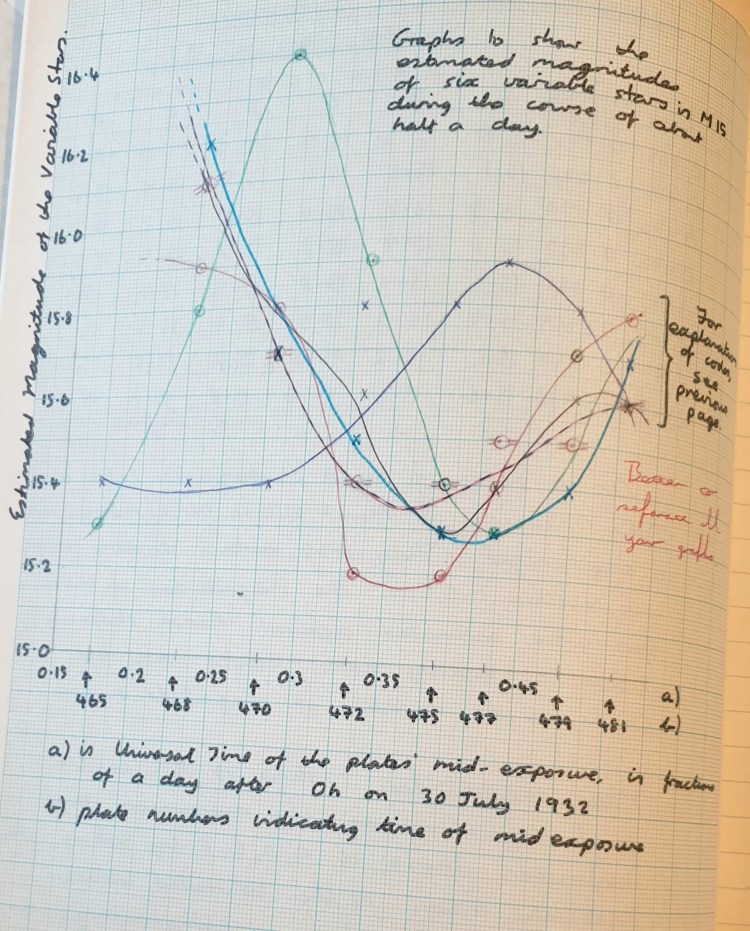 Graphs to show the
estimated magnitudes
of six variable stars in M15
during the course of about
half a day.
Estimated Magnitude of the Variable Stars.
16.4
16.2
16.0
15.8
15.6
15.4
15.2
15.0
For
explanation
of codes,
see
previous
page.
Better
reference
your graphs
0.15 0.2 0.25 0.3 0.35 0.45 a)
465 468 470 472 475 477 479 481 b)
a) is Universal Time of the plates' mid-exposure, in fractions
of a day after 0h on 30 July 1932
b) plate numbers indicating time of mid exposure